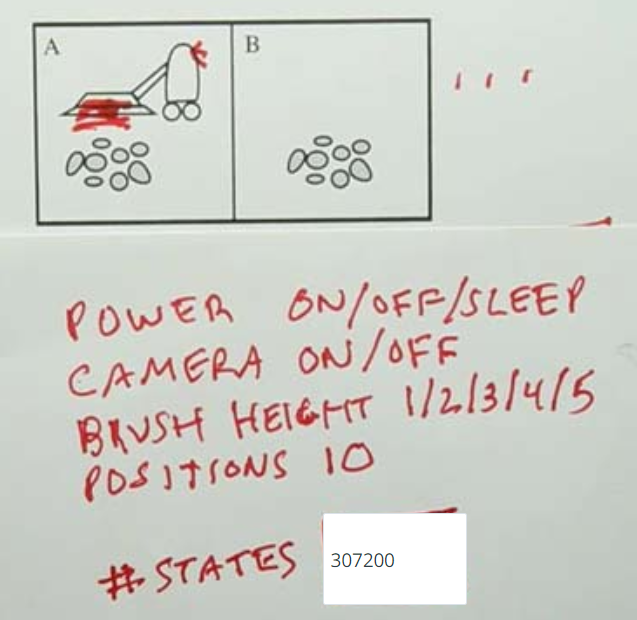 A B
POWER ON/OFF/SLEEP
CAMERA ON/OFF
BRUSH HEIGHT 1/2/3/4/5
POSITIONS 10
# STATES 307200